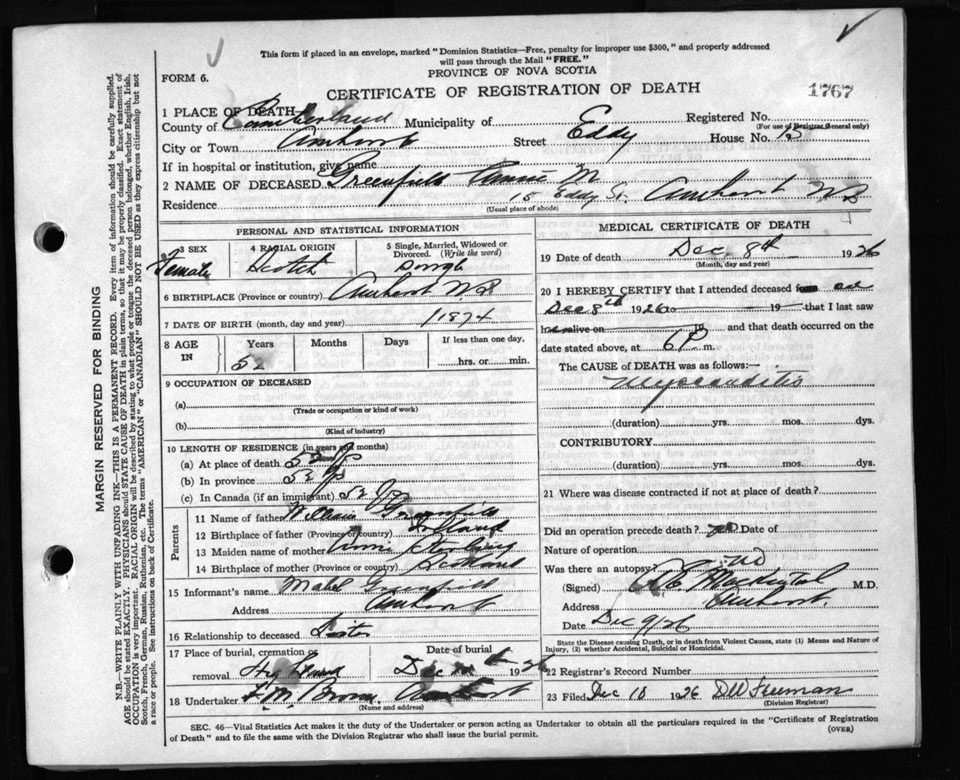 This form if placed in an envelope, marked "Dominion Statistics—Free, penalty for improper use $300," and properly addressed
will pass through the Mail "FREE."
PROVINCE OF NOVA SCOTIA
FORM 6.
CERTIFICATE OF REGISTRATION OF DEATH
1767
1 PLACE OF DEATH
County of Cumberland Municipality of Registered No.
(For use of Registrar General only)
City or Town Amherst Street Eddy House No. 15
If in hospital or institution, give name
2 NAME OF DECEASED Greenfield Annie M
Residence 15 Eddy St. Amherst N.S
(Usual place of abode)
PERSONAL AND STATISTICAL INFORMATION
3 SEX Female
4 RACIAL ORIGIN Scotch
5 Single, Married, Widowed or Divorced. (Write the word) Single
6 BIRTHPLACE (Province or country) Amherst N.S
7 DATE OF BIRTH (month, day and year) 1874
8 AGE IN Years Months Days If less than one day,
52 hrs. or min.
9 OCCUPATION OF DECEASED
(a)
(Trade or occupation or kind of work)
(b)
(Kind of industry)
10 LENGTH OF RESIDENCE (in years and months)
(a) At place of death 52 yrs
(b) In province 52 yrs
(c) In Canada (if an immigrant) 52 yrs
Parents
11 Name of father William Greenfield
12 Birthplace of father (Province or country)
13 Maiden name of mother Annie
14 Birthplace of mother (Province or country) Scotland
15 Informant's name Mabel Greenfield
Address Amherst
16 Relationship to deceased Sister
17 Place of burial, cremation or removal Date of burial
Dec 26
18 Undertaker F. M. Brown Amherst
(Name and address)
MEDICAL CERTIFICATE OF DEATH
19 Date of death Dec 8th 1926
(Month, day and year)
20 I HEREBY CERTIFY that I attended deceased
Dec 8th 1926 to 19 that I last saw
alive on 19 and that death occurred on
date stated above, at 6 P m.
The CAUSE OF DEATH was as follows:—
Myocarditis
(duration) yrs. mos. dys.
CONTRIBUTORY
(duration) yrs. mos. dys.
21 Where was disease contracted if not at place of death?
Did an operation precede death? no Date of
Nature of operation
Was there an autopsy? No
(Signed) M.D.
Address Amherst.
Date Dec 9/26
State the Disease causing Death, or in death from Violent Causes, state (1) Means and Nature of
Injury, (2) whether Accidental, Suicidal or Homicidal.
22 Registrar's Record Number
23 Filed Dec 10 1926 DW Freeman
(Division Registrar)
SEC. 46—Vital Statistics Act makes it the duty of the Undertaker or person acting as Undertaker to obtain all the particulars required in the "Certificate of Registration
of Death" and to file the same with the Division Registrar who shall issue the burial permit.
(OVER)
MARGIN RESERVED FOR BINDING
N.B.—WRITE PLAINLY WITH UNFADING INK—THIS IS A PERMANENT RECORD. Every item of information should be carefully supplied.
AGE should be stated EXACTLY. PHYSICIANS should STATE CAUSE OF DEATH in plain terms, so that it may be properly classified. Exact statement of
OCCUPATION is very important. RACIAL ORIGIN will be described by stating to what people or tongue the deceased person belonged, whether English, Irish,
Scotch, French, German, Russian, Ruthenian, etc. The terms "AMERICAN" or "CANADIAN" SHOULD NOT BE USED as they express citizenship but not
a race or people. See instructions on back of Certificate.